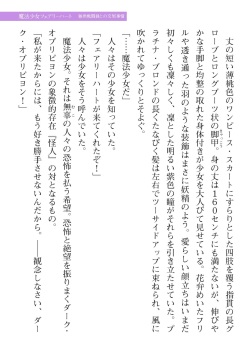 魔法少女フェアリーハート
丈の短い薄桃色のワンピース・スカートにすらりとした四肢を覆う指貫の長グ
ローブとロングブーツ状の脚甲。身の丈は160センチにも満たないが、伸びや
かな手脚と均整の取れた身体付きが少女を大人びて見せている。花弁めいたフリ
ルや透き通った羽のような装飾はまさに妖精のよう。愛らしい顔立ちはいまだ
初々しくも凛々しく、凛とした明るい紫色の瞳がそれらを引き立たせていた。プ
ラチナ・ブロンドの長くたなびく髪は左右でツーサイドアップに束ねられ、風に
吹かれてゆっくりとそよぐ。
「……魔法少女だ」
人々はその少女を知っていた。
「フェアリーハートが来てくれたぞ！」
人々は少女をそう呼んでいた。
魔法少女。それは無辜の人々の恐怖を払う希望。恐怖と絶望を振りまくダーク・
オブリビヨンの象徴的存在『怪人』の対となる存在だ。
「私が来たからには、もう好き勝手させないんだから。――観念しなさい、ダー
ク・オブリビヨン！」